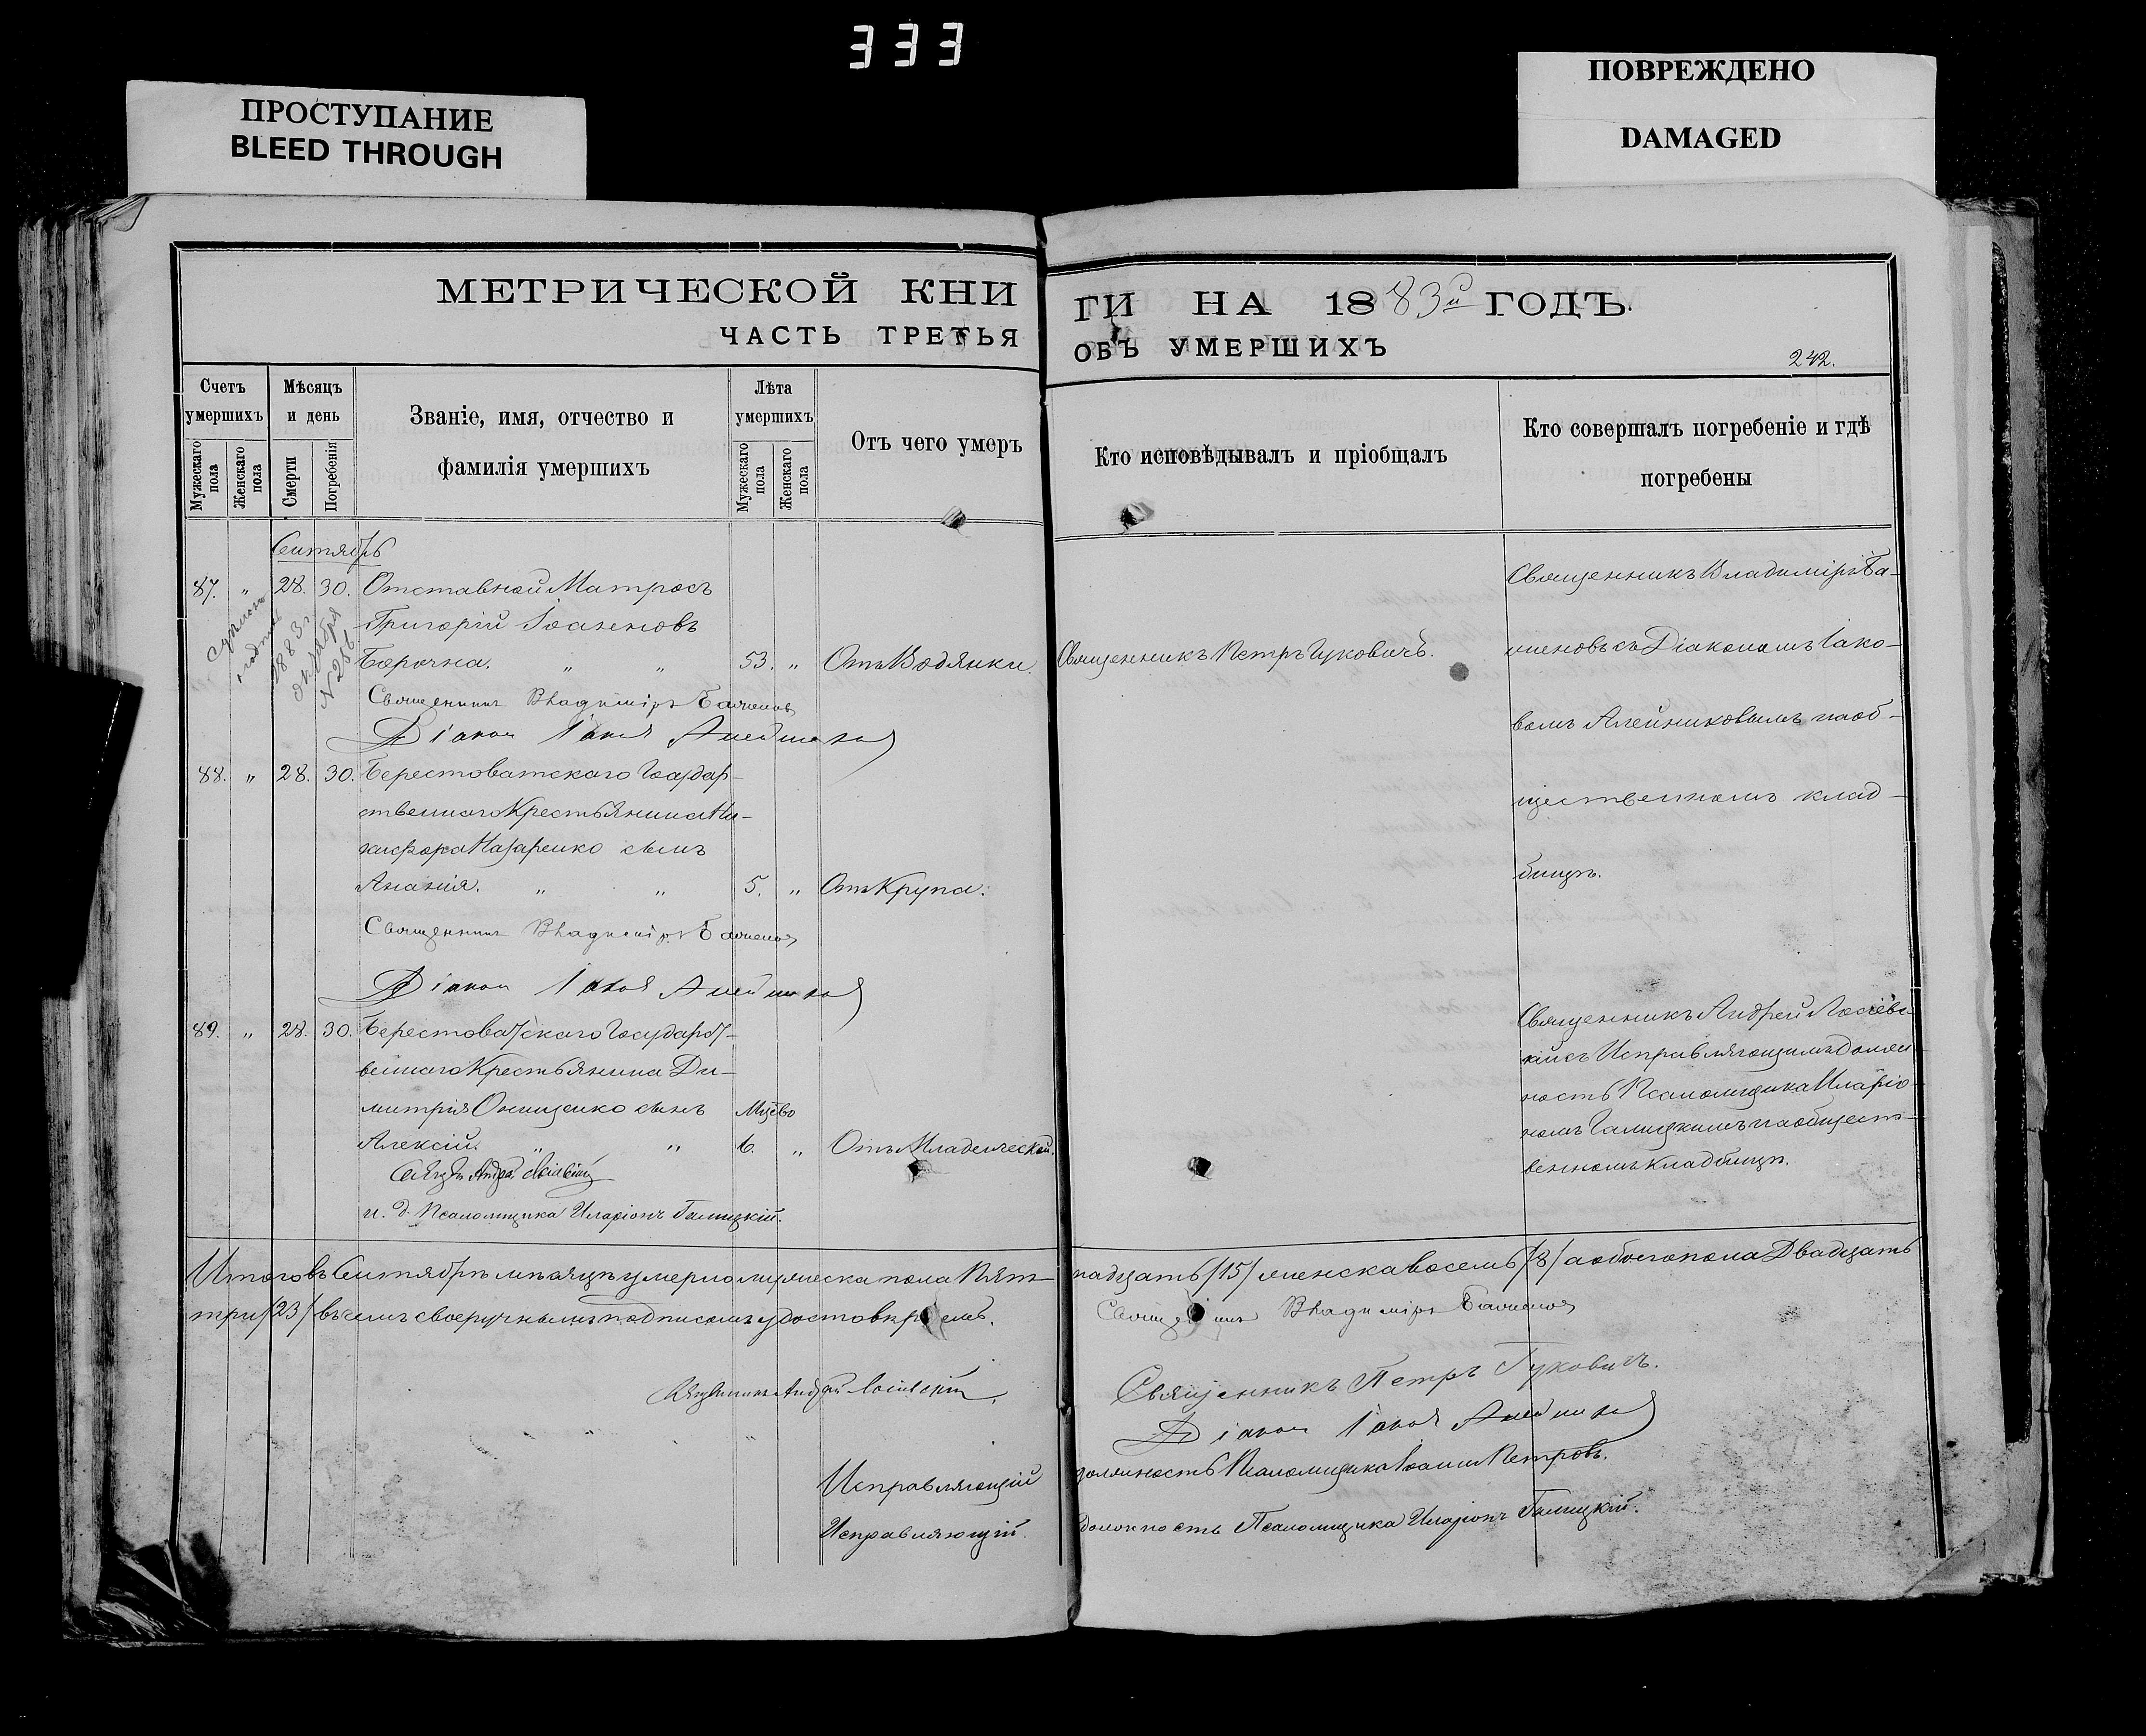 333
ПРОСТУПАНИЕ
BLEED THROUGH
ПОВРЕЖДЕНО
DAMAGED
МЕТРИЧЕСКОЙ КНИ
ГИ НА 1883й ГОДЪ.
ЧАСТЬ ТРЕТЬЯ
ОБЪ УМЕРШИХЪ
242.
Счетъ умершихъ
Мужескаго пола
Женскаго пола
Мѣсяцъ и день
Смерти
Погребенія
Званіе, имя, отчество и
фамилія умершихъ
Лѣта умершихъ
Мужескаго пола
Женскаго пола
Отъ чего умеръ
Кто исповѣдывалъ и пріобщалъ
Кто совершалъ погребеніе и гдѣ
погребены
Сентябрь
87. " 28. 30. Отставной Матросъ
Григорій Іоанновъ
" " 53. " Отъ Водянки. Священникъ Петръ Гуковичъ.
1883 г.
октября
Священникъ Владиміръ
Діаконъ Іаковъ Алейниковъ
Священникъ Владиміръ Ба-
женовъ съ Діакономъ Іако-
вомъ Алейниковымъ на об-
щественномъ клад-
бищѣ.
88. " 28. 30. Берестоватскаго Государ-
ственнаго Крестьянина Ни-
кифора Назаренко сынъ
Ананія. " " 5. " Отъ Крупа.
Священникъ Владиміръ
Діаконъ Іаковъ Алейниковъ
89. " 28. 30. Берестоватскаго Государст-
веннаго Крестьянина Ди-
митрія Онищенко сынъ
Алексій. " " 6. " Отъ Младенческой.
Андрей
и. д. Псаломщика Иларіонъ Галицкій.
Священникъ Андрей
кій съ Исправляющимъ должн-
ность Псаломщика Иларіо-
номъ Галицкимъ на общест-
венномъ кладбищѣ.
Итого въ Сентябрѣ мѣсяцѣ умерло мужеска пола Пят-
надцать /15/ женска восемь /8/ а обоего пола Двадцать
три /23/ въ чемъ своеручнымъ подписомъ удостовѣряемъ.
Священникъ Владиміръ
Священникъ Андрей
Священникъ Петръ Гуковичъ.
Діаконъ Іаковъ Алейниковъ
Исправляющій должность Псаломщика Іоаннъ Петровъ.
Исправляющій должность Псаломщика Иларіонъ Галицкій.